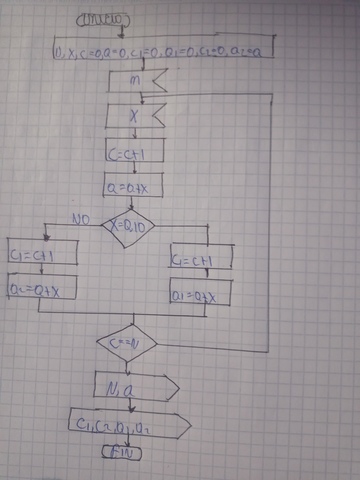 INICIO
n, x, c=0, a=0, c1=0, a1=0, c2=0, a2=a
m
X
C=C+1
a=a+x
X=0,10
NO
C1=C+1
C1=C+1
a2=a+X
a1=a+X
C==N
N, a
C1, C2, a1, a2
FIN